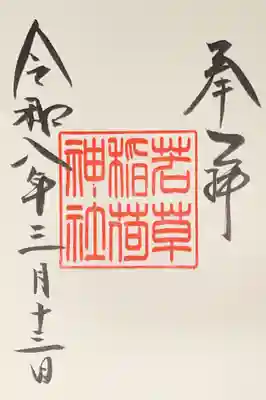 奉拝
若草
稲荷
神社
令和八年三月十二日